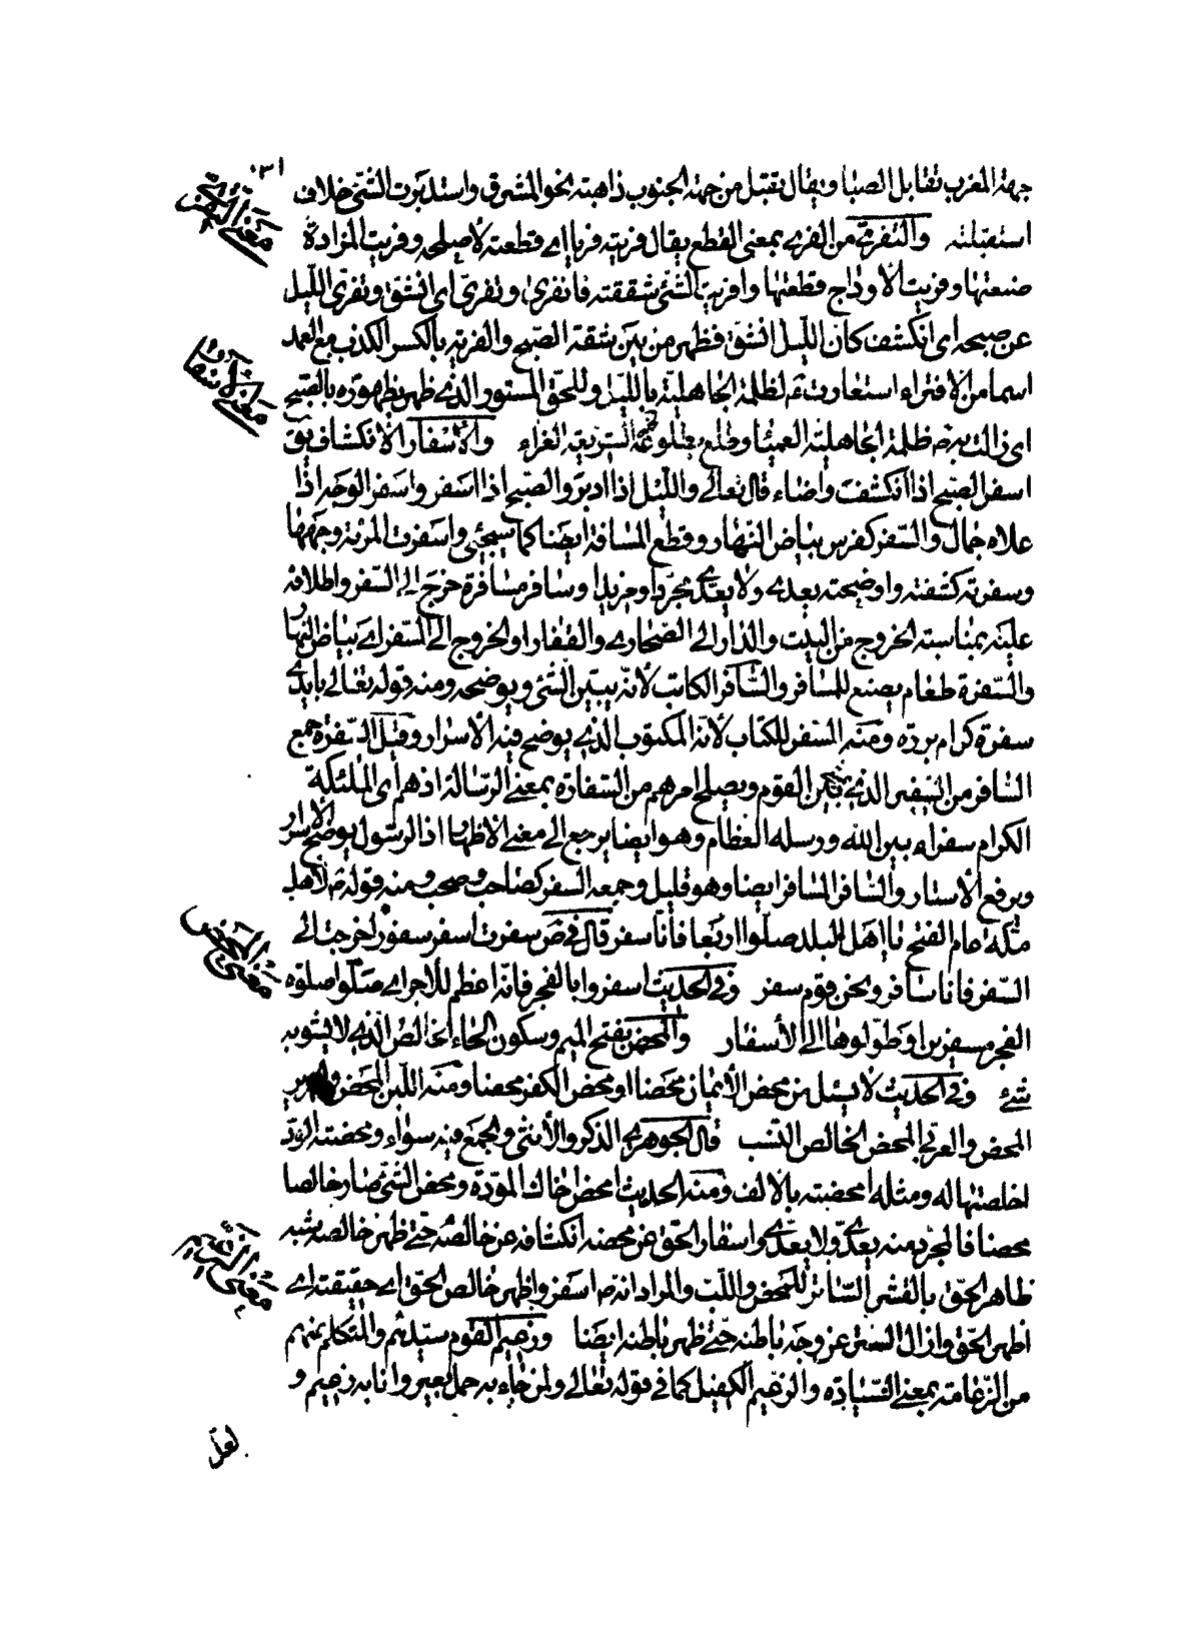 ١٣٠
جهة المغرب تقابل الصبا ويقال تقبل من جهة الجنوب ذاهبة نحو المشرق واستدبرت الشئ خلاف
استقبلته والتفرى من الفرى بمعنى القطع يقال فريته فريا اى قطعته لاصلحه وفريت المزادة
صنعتها وفريت الاوداج قطعتها وافريت الشئ شققته فانفرى وتفرى اى انشق وتفرى الليل
عن صبحه اى انكشف كان الليل انشق فظهر من بين شقته الصبح والفرية بالكسر الكذب مع العمد
اسما من الافتراء استعارت ثم لظلمة الجاهلية بالليل وللحق المستور الذى ظهر بظهوره بالصبح
اى زالت به ظلمة الجاهلية العمياء وطلع بطلوعه الشريعة الغراء والاسفار الانكشاف يق
اسفر الصبح اذا انكشفت واضاء قال تعالى والليل اذا ادبر والصبح اذا اسفر واسفر الوجه اذا
علاه جمال والسفر كفرس بياض النهار وقطع المسافة ايضا كما سيجئ واسفرت المرئة وجهها
وسفرته كشفته واوضحته يعدى ولا يعدى مجردا ومزيدا وسافر مسافرة خرج الى السفر واطلاقه
عليه بمناسبة الخروج من البيت والدار الى الصحارى والقفار او الخروج الى السفر اى بياض النهار
والسفرة طعام يصنع للمسافر والسافر الكاتب لانه يبين الشئ ويوضحه ومنه قوله تعالى بايدى
سفرة كرام بررة ومنه السفر للكتاب لانه المكتوب الذى يوضح فيه الاسرار وقيل السفرة جمع
السافر من السفير الذى بين القوم ويصلح امرهم من السفارة بمعنى الرسالة اذ هم اى الملئكة
الكرام سفراء بين الله ورسله العظام وهو ايضا يرجع الى معنى الاظهار اذ الرسول يوضح الاسرار
ويرفع الاستار والسافر المسافر ايضا وهو قليل وجمعه السفر كصاحب وصحب ومنه قوله لاهل
مكة عام الفتح يا اهل البلد صلوا اربعا فانا سفر قال فى ض سفرت اسفر سفورا خرجت الى
السفر فانا سافر ونحن قوم سفر وفى الحديث اسفروا بالفجر فانه اعظم للاجر اى صلوا صلوة
الفجر مسفرين او طولوها الى الاسفار والمحض بفتح الميم وسكون الحاء الخالص الذى لا يشوبه
شئ وفى الحديث لا يسئل من محض الايمان محضا او محض الكفر محضا ومنه اللبن المحض
المحض والعربى المحض الخالص النسب قال الجوهرى الذكر والانثى والجمع فيه سواء ومحضته الود
اخلصتها له ومثله امحضته بالالف ومنه الحديث امحض اخاك المودة ومحض الشئ صار خالصا
محضا فالمجرد منه يعدى ولا يعدى واسفار الحق عن محضه انكشافه عن خالصه حتى ظهر خالصه شبه
ظاهر الحق بالقشر الساتر للمحض واللب والمراد انه اسفر واظهر خالص الحق اى حقيقته اى
اظهر الحق وازال الستر عن وجه باطنه حتى ظهر باطنه ايضا وزعيم القوم سيدهم والمتكلم منهم
من الزعامة بمعنى السيادة والزعيم الكفيل كما فى قوله تعالى ولمن جاء به حمل بعير وانا به زعيم و
لعل
معنى التفرى
معنى الاسفار
معنى المحض
معنى الزعيم